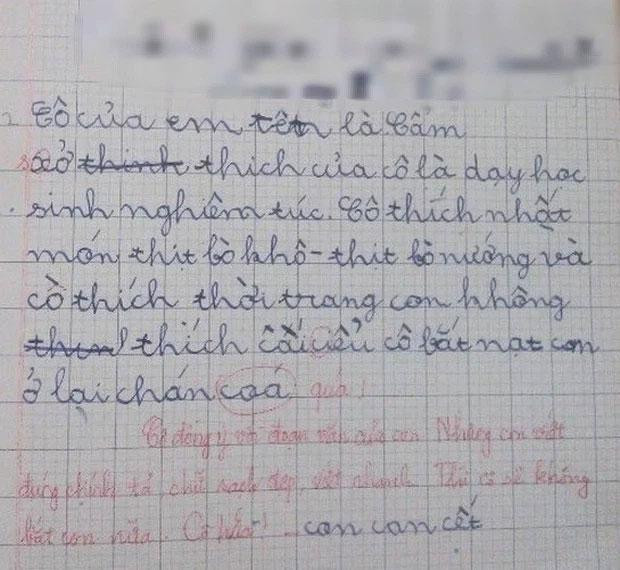 Cô của em tên là Cẩm
sở thinh thich của cô là dạy học
sinh nghiêm túc. Cô thích nhất
món thịt bò khô - thịt bò nướng và
cồ thích thời trang con không
thin thích cái iểu cô bắt nạt con
ở lại chán coá quá!
Cô đồng ý với đoạn văn của con Nhưng con viết
đúng chính tả chữ sạch đẹp, viết nhanh. Thì cô sẽ không
bắt con nữa. Cô hứa!
con con cết